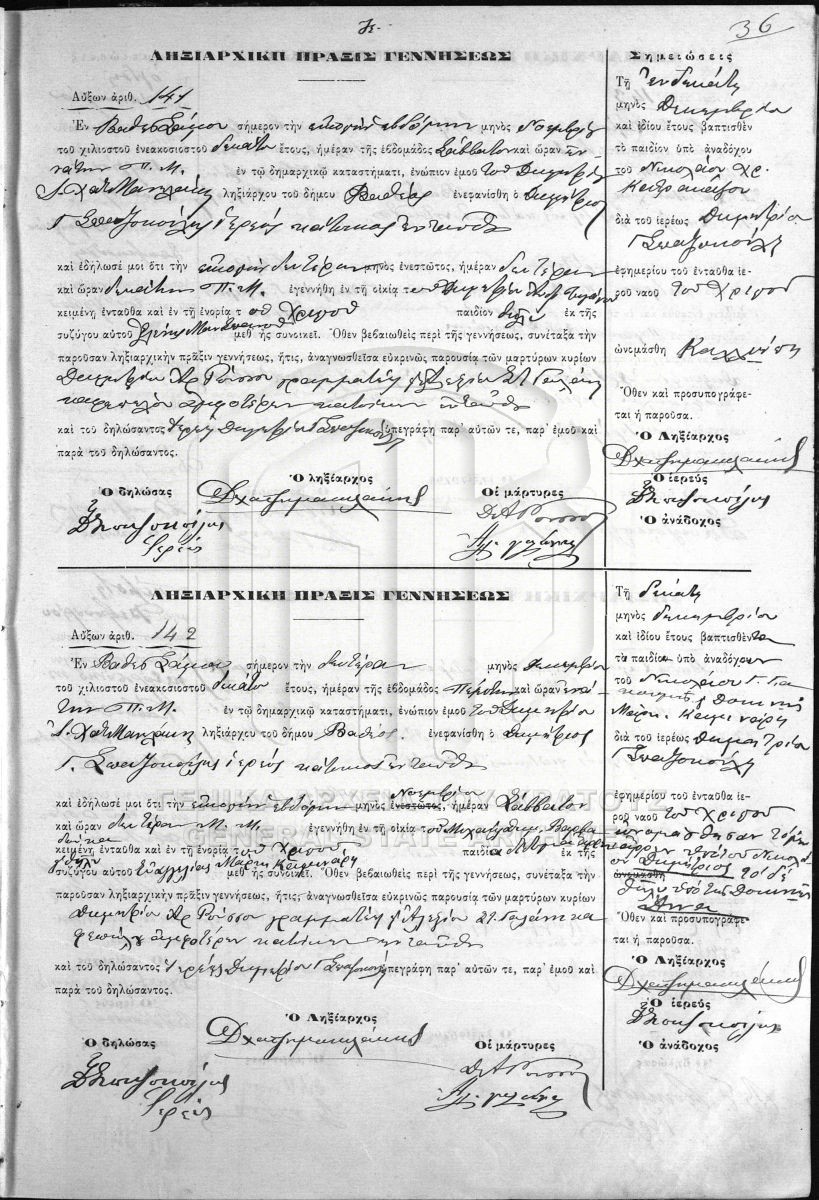 36
ΛΗΞΙΑΡΧΙΚΗ ΠΡΑΞΙΣ ΓΕΝΝΗΣΕΩΣ
Αὔξων ἀριθ. 141
Ἐν Βαθεῖ Σάμου σήμερον τὴν εἰκοστὴν ἑβδόμην μηνὸς Νοεμβρίου
τοῦ χιλιοστοῦ ἐνεακοσιοστοῦ δεκάτου ἔτους, ἡμέραν τῆς ἑβδομάδος Σάββατον καὶ ὥραν ἐν-
νάτην Π.Μ. ἐν τῷ δημαρχικῷ καταστήματι, ἐνώπιον ἐμοῦ τοῦ Δημητρίου
Ι. ΧατΜανωλάκη ληξιάρχου τοῦ δήμου Βαθέος ἐνεφανίσθη ὁ Δημήτριος
Γ Σπατζοκοίλης ἱερεὺς κάτοικος ἐνταῦθα
καὶ ἐδήλωσέ μοι ὅτι τὴν εἰκοστὴν δευτέραν μηνὸς ἐνεστῶτος, ἡμέραν δευτέραν
καὶ ὥραν δεκάτην Π.Μ. ἐγεννήθη ἐν τῇ οἰκίᾳ τοῦ Δημητρίου
κειμένῃ ἐνταῦθα καὶ ἐν τῇ ἐνορίᾳ τοῦ Χριστοῦ παιδίον θῆλυ ἐκ τῆς
συζύγου αὐτοῦ Ἑλένης μεθ᾽ ἧς συνοικεῖ. Ὅθεν βεβαιωθεὶς περὶ τῆς γεννήσεως, συνέταξα τὴν
παροῦσαν ληξιαρχικὴν πρᾶξιν γεννήσεως, ἥτις, ἀναγνωσθεῖσα εὐκρινῶς παρουσίᾳ τῶν μαρτύρων κυρίων
Δημητρίου Ἀρ Ρούσσου γραμματέως Ἀλεξίου Στ Γαλάνη
ἀμφοτέρων κατοίκων ἐνταῦθα
καὶ τοῦ δηλώσαντος ἱερέως Δημητρίου Γ Σπατζοκοίλη ὑπεγράφη παρ᾽ αὐτῶν τε, παρ᾽ ἐμοῦ καὶ
παρὰ τοῦ δηλώσαντος.
Ὁ ληξίαρχος
Ὁ δηλώσας
Οἱ μάρτυρες
Δχατζημανωλάκης
ΔΣπατζοκοίλης
Ἱερεύς
Δ Α Ρούσσος
Ἀλ. Γαλάνης
Σημειώσεις
Τῇ ἑνδεκάτῃ
μηνὸς Δεκεμβρίου
καὶ ἰδίου ἔτους βαπτισθὲν
τὸ παιδίον ὑπὸ ἀναδόχου
τοῦ Νικολάου Χρ.
διὰ τοῦ ἱερέως Δημητρίου
Γ Σπατζοκοίλη
ἐφημερίου τοῦ ἐνταῦθα ἱε-
ροῦ ναοῦ τοῦ Χριστοῦ
ὠνομάσθη Καλλιόπη
Ὅθεν καὶ προσυπογράφε-
ται ἡ παροῦσα.
Ὁ Ληξίαρχος
Δχατζημανωλάκης
Ὁ ἱερεύς
ΔΣπατζοκοίλης
Ὁ ἀνάδοχος
ΛΗΞΙΑΡΧΙΚΗ ΠΡΑΞΙΣ ΓΕΝΝΗΣΕΩΣ
Αὔξων ἀριθ. 142
Ἐν Βαθεῖ Σάμου σήμερον τὴν δευτέραν μηνὸς Δεκεμβρίου
τοῦ χιλιοστοῦ ἐνεακοσιοστοῦ δεκάτου ἔτους, ἡμέραν τῆς ἑβδομάδος Πέμπτην καὶ ὥραν ἐννά-
την Π.Μ. ἐν τῷ δημαρχικῷ καταστήματι, ἐνώπιον ἐμοῦ τοῦ Δημητρίου
Ι. ΧατΜανωλάκη ληξιάρχου τοῦ δήμου Βαθέος ἐνεφανίσθη ὁ Δημήτριος
Γ. Σπατζοκοίλης ἱερεὺς κάτοικος ἐνταῦθα
Νοεμβρίου
καὶ ἐδήλωσέ μοι ὅτι τὴν εἰκοστὴν ἑβδόμην μηνὸς ἐνεστῶτος, ἡμέραν Σάββατον
καὶ ὥραν δευτέραν Μ.Μ. ἐγεννήθη ἐν τῇ οἰκίᾳ τοῦ
κειμένῃ ἐνταῦθα καὶ ἐν τῇ ἐνορίᾳ τοῦ Χριστοῦ παιδία ἐκ τῆς
συζύγου αὐτοῦ Εὐαγγελίας μεθ᾽ ἧς συνοικεῖ. Ὅθεν βεβαιωθεὶς περὶ τῆς γεννήσεως, συνέταξα τὴν
παροῦσαν ληξιαρχικὴν πρᾶξιν γεννήσεως, ἥτις, ἀναγνωσθεῖσα εὐκρινῶς παρουσίᾳ τῶν μαρτύρων κυρίων
Δημητρίου Ἀρ Ρούσσου γραμματέως Ἀλεξίου Στ. Γαλάνη
ἀμφοτέρων κατοίκων ἐνταῦθα
καὶ τοῦ δηλώσαντος ἱερέως Δημητρίου Γ Σπατζοκοίλη ὑπεγράφη παρ᾽ αὐτῶν τε, παρ᾽ ἐμοῦ καὶ
παρὰ τοῦ δηλώσαντος.
Ὁ Ληξίαρχος
Ὁ δηλώσας
Οἱ μάρτυρες
Δχατζημανωλάκης
ΔΣπατζοκοίλης
Ἱερεύς
Δ Α Ρούσσος
Ἀλ. Γαλάνης
Τῇ δεκάτῃ
μηνὸς Δεκεμβρίου
καὶ ἰδίου ἔτους βαπτισθέντα
τὰ παιδία ὑπὸ ἀναδόχων
τοῦ Νικολάου Γ.
διὰ τοῦ ἱερέως Δημητρίου
Γ Σπατζοκοίλη
ἐφημερίου τοῦ ἐνταῦθα ἱε-
ροῦ ναοῦ τοῦ Χριστοῦ
ὠνομάσθησαν τὸ μὲν
Δημήτριος τὸ δὲ
ὠνομάσθη
θῆλυ ὑπὸ τῆς
Ἄννα
Ὅθεν καὶ προσυπογράφε-
ται ἡ παροῦσα.
Ὁ Ληξίαρχος
Δχατζημανωλάκης
Ὁ ἱερεύς
ΔΣπατζοκοίλης
Ὁ ἀνάδοχος
ΓΕΝΙΚΑ ΑΡΧΕΙΑ ΤΟΥ ΚΡΑΤΟΥΣ
GENERAL STATE ARCHIVES